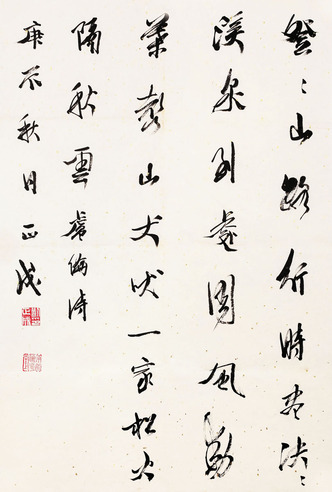 登〻山路行時盡決〻
溪泉到處聞風動
葉聲山犬吠一家松火
隔秋雲盧綸詩
庚秋日正成